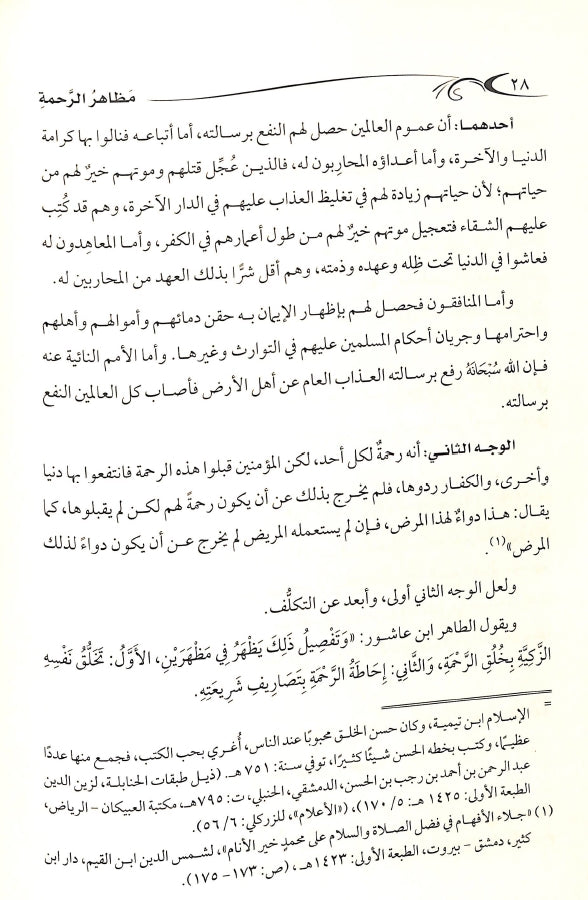 ٢٨
مَظاهرُ الرَّحمةِ
أحدهما: أن عموم العالمين حصل لهم النفع برسالته، أما أتباعه فنالوا بها كرامة
الدنيا والآخرة، وأما أعداؤه المحاربون له، فالذين عُجِّل قتلهم وموتهم خيرٌ لهم من
حياتهم؛ لأن حياتهم زيادة لهم في تغليظ العذاب عليهم في الدار الآخرة، وهم قد كُتِب
عليهم الشقاء فتعجيل موتهم خيرٌ لهم من طول أعمارهم في الكفر، وأما المعاهِدون له
فعاشوا في الدنيا تحت ظِله وعهده وذمته، وهم أقل شرًّا بذلك العهد من المحاربين له.
وأما المنافقون فحصل لهم بإظهار الإيمان به حقن دمائهم وأموالهم وأهلهم
واحترامها وجريان أحكام المسلمين عليهم في التوارث وغيرها. وأما الأمم النائية عنه
فإن الله سُبْحَانَهُ رفع برسالته العذاب العام عن أهل الأرض فأصاب كل العالمين النفع
برسالته.
الوجه الثاني: أنه رحمةٌ لكل أحد، لكن المؤمنين قبلوا هذه الرحمة فانتفعوا بها دنيا
وأخرى، والكفار ردوها، فلم يخرج بذلك عن أن يكون رحمةً لهم لكن لم يقبلوها، كما
يقال: هذا دواءٌ لهذا المرض، فإن لم يستعمله المريض لم يخرج عن أن يكون دواءً لذلك
المرض»(١).
ولعل الوجه الثاني أولى، وأبعد عن التكلُّف.
ويقول الطاهر ابن عاشور: «وَتَفْصِيلُ ذَلِكَ يَظْهَرُ فِي مَظْهَرَيْنِ، الأَوَّلُ: تَخَلُّقُ نَفْسِهِ
الزَّكِيَّةِ بِخُلُقِ الرَّحْمَةِ، وَالثَّانِي: إِحَاطَةُ الرَّحْمَةِ بِتَصَارِيفِ شَرِيعَتِهِ.
=
الإسلام ابن تيمية، وكان حسن الخلق محبوبًا عند الناس، أُغري بحب الكتب، فجمع منها عددًا
عظيمًا، وكتب بخطه الحسن شيئًا كثيرًا، توفي سنة: ٧٥١ هـ. (ذيل طبقات الحنابلة، لزين الدين
عبد الرحمن بن أحمد بن رجب بن الحسن، الدمشقي، الحنبلي، ت: ٧٩٥هـ، مكتبة العبيكان - الرياض،
الطبعة الأولى: ١٤٢٥ هـ: ٥/ ١٧٠)، («الأعلام»، للزركلي: ٦/ ٥٦).
(١) «جلاء الأفهام في فضل الصلاة والسلام على محمدٍ خير الأنام»، لشمس الدين ابن القيم، دار ابن
كثير، دمشق - بيروت، الطبعة الأولى: ١٤٢٣هـ، (ص: ١٧٣- ١٧٥).